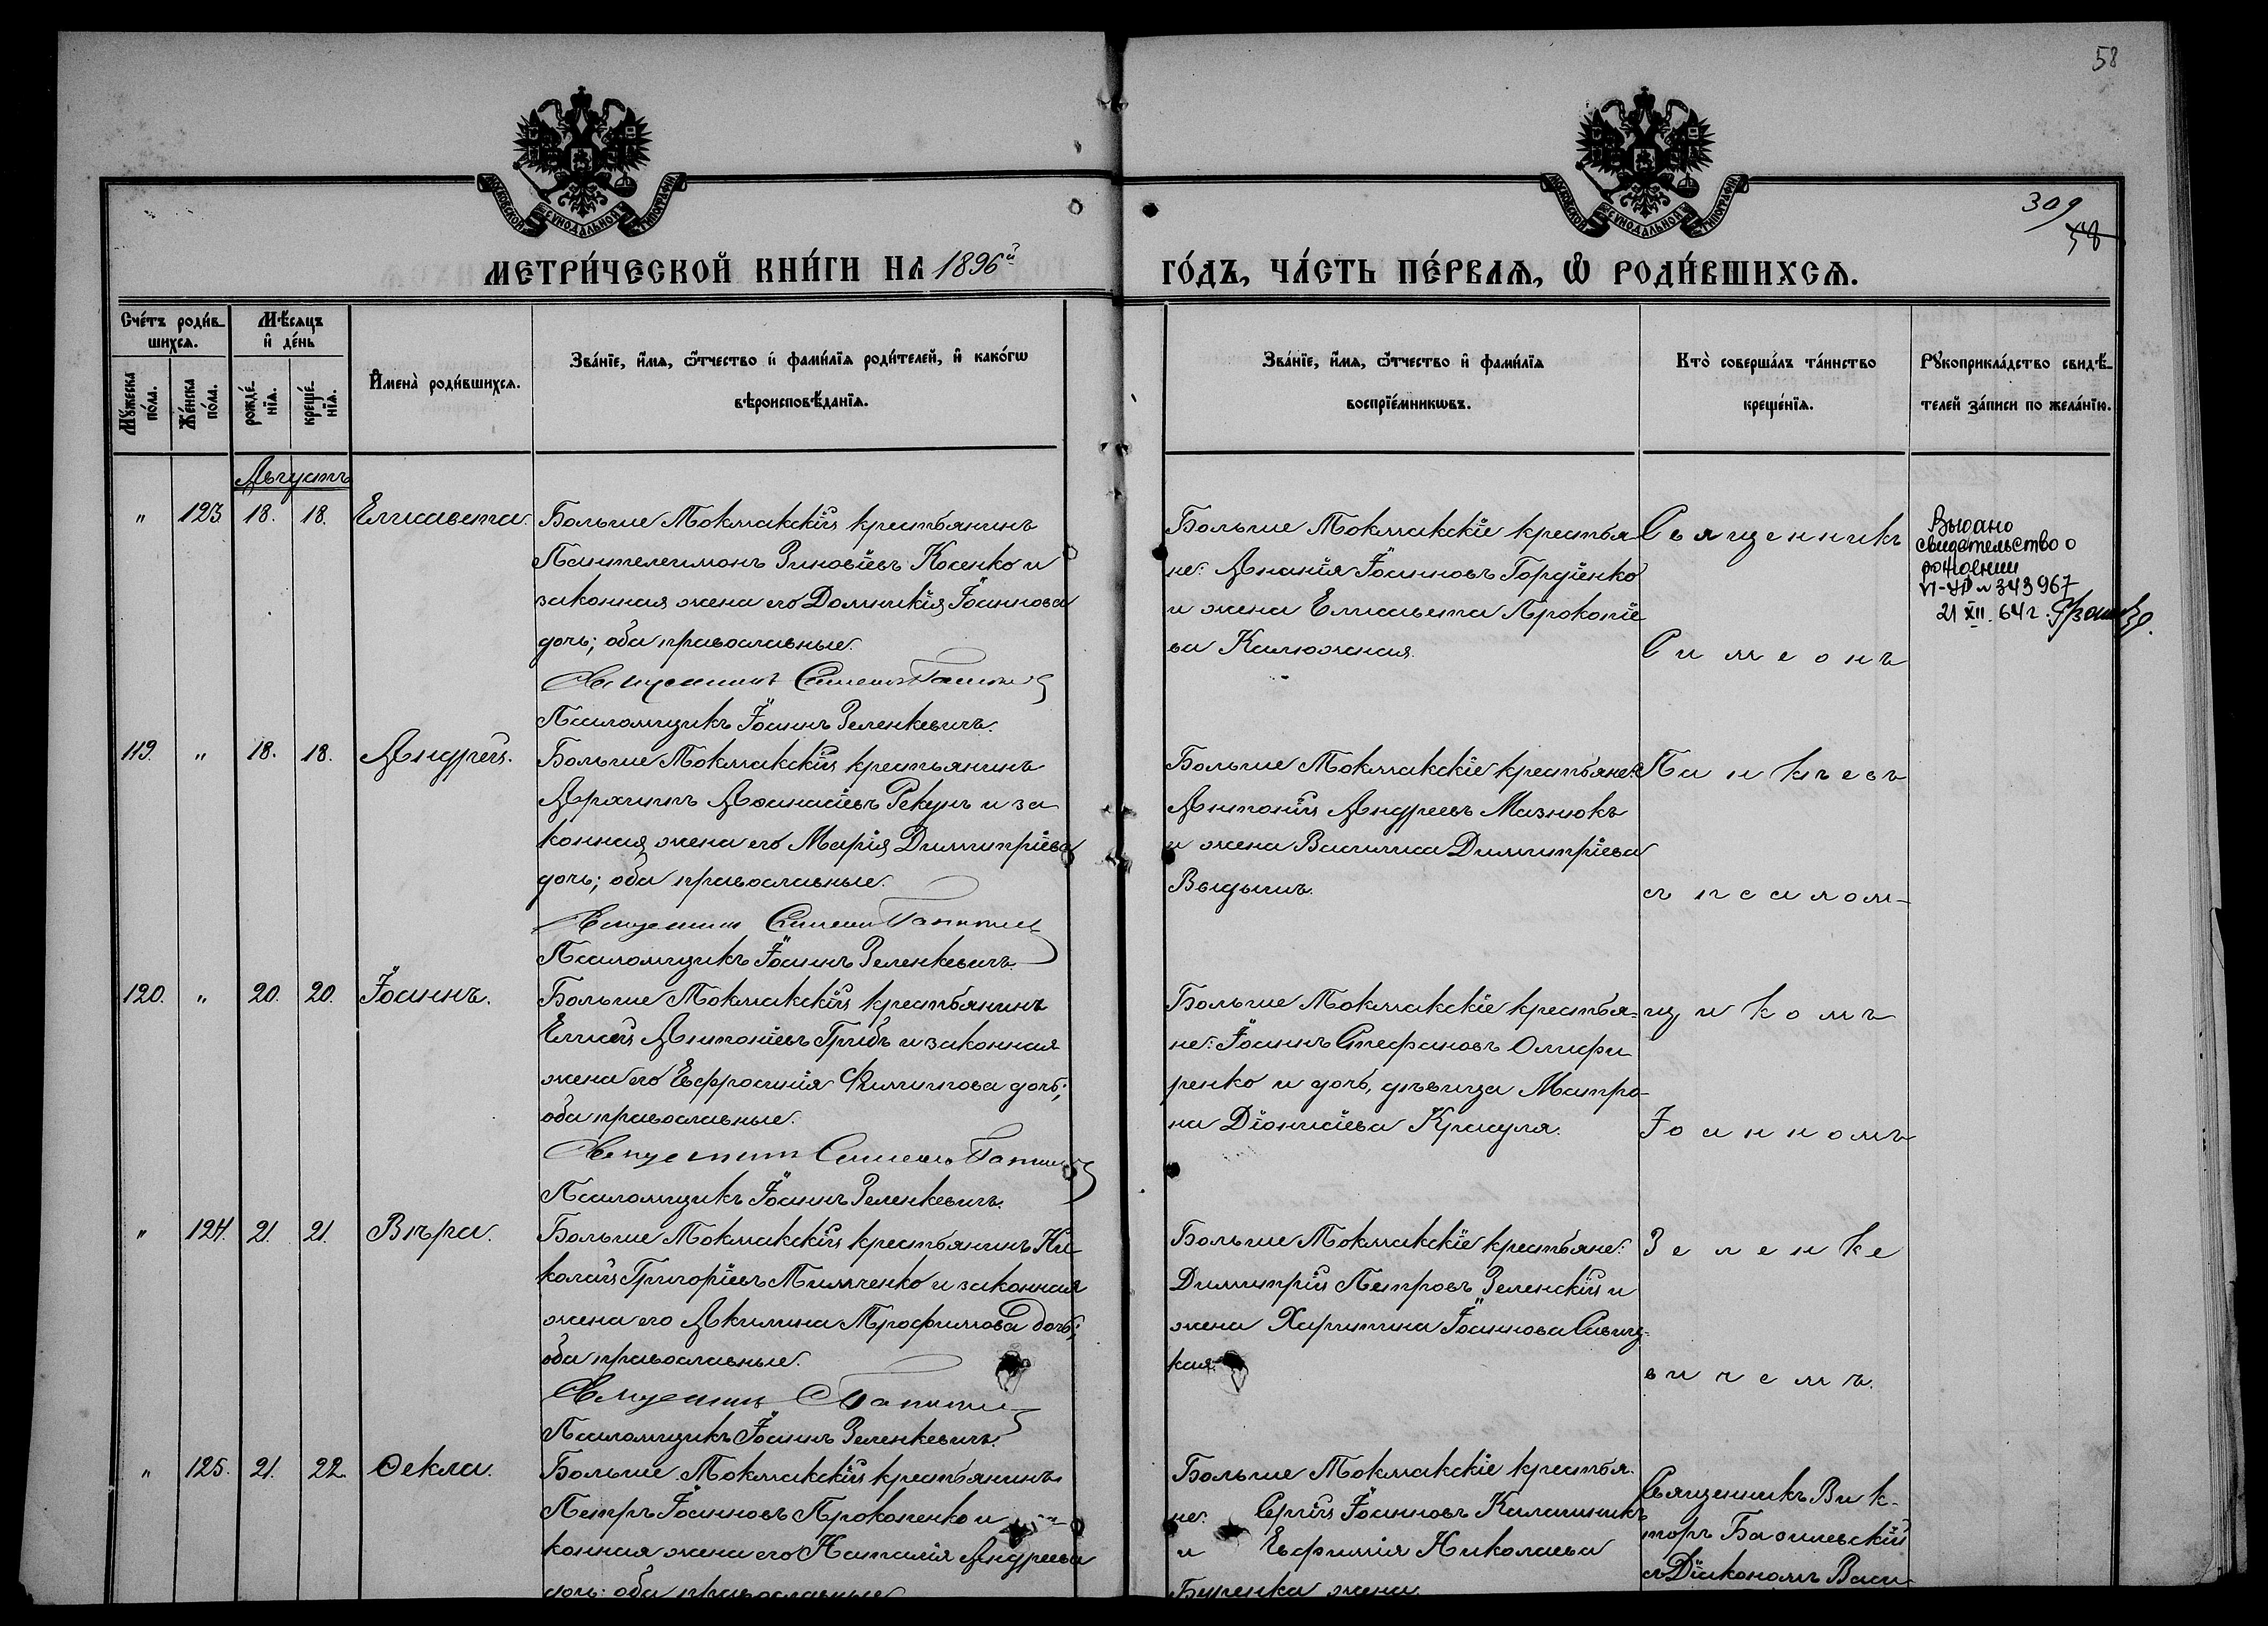 58
МОСКОВСКОЙ СѴНОДАЛЬНОЙ ТИПОГРАФІИ
МОСКОВСКОЙ СѴНОДАЛЬНОЙ ТИПОГРАФІИ
309
58
МЕТРИ́ЧЕСКОЙ КНИ́ГИ НА 1896й
ГО́ДЪ, ЧА́СТЬ ПЕ́РВАѦ, Ѡ҆ РОДИ́ВШИХСѦ.
Сче́тъ роди́в-
шихсѧ.
Мѣ́сѧцъ
и҆ де́нь
Мꙋ́жеска
по́ла.
Же́нска
по́ла.
рожде́-
нїѧ.
креще́-
нїѧ.
И҆мена̀ роди́вшихсѧ.
Зва́нїе, и҆́мѧ, ѻ҆́тчество и҆ фами́лїѧ роди́телей, и҆ како́гѡ
вѣроисповѣ́данїѧ.
Зва́нїе, и҆́мѧ, ѻ҆́тчество и҆ фами́лїѧ
воспрїе́мникѡвъ.
Кто̀ соверша́лъ та́инство
креще́нїѧ.
Рꙋкоприкла́дство свидѣ́-
телей за́писи по жела́нїю.
Августъ
" 123. 18. 18. Елисавета.
Больше Токмакскій крестьянинъ
Пантелеимонъ Зиновіевъ Косенко и
законная жена его Домникія Іоаннова
дочь; оба православные.
Священникъ Симеонъ
Псаломщикъ Іоаннъ Зеленкевичъ.
Больше Токмакскіе крестья-
не: Ананія Іоанновъ Гордіенко
и жена Елисавета Прокопіе
ва Калюжная.
Священникъ
Симеонъ
Выдано
свидетельство о
рождении
343967
21 XII. 64 г.
119. " 18. 18. Андрей.
Больше Токмакскій крестьянинъ
Архиппъ Аѳанасіевъ Рекунъ и за
конная жена его Марія Димитріева
дочь; оба православные.
Священникъ Симеонъ
Псаломщикъ Іоаннъ Зеленкевичъ.
Больше Токмакскіе крестьяне:
Антоній Андреевъ Мазнюкъ
и жена Василиса Димитріева
съ псалом-
120. " 20. 20. Іоаннъ.
Больше Токмакскій крестьянинъ
Елисей Антоніевъ Грибъ и законная
жена его Евфросинія Филиппова дочь;
оба православные.
Священникъ Симеонъ
Псаломщикъ Іоаннъ Зеленкевичъ.
Больше Токмакскіе крестья-
не: Іоаннъ Стефановъ Олифи
ренко и дочь, дѣвица Матро-
на Діонисіева Красуля.
щикомъ
Іоанномъ
" 124. 21. 21. Вѣра.
Больше Токмакскій крестьянинъ Ни-
колай Григоріевъ Тимченко и законная
жена его Акилина Трофимова дочь;
оба православные.
Священникъ
Псаломщикъ Іоаннъ Зеленкевичъ.
Больше Токмакскіе крестьяне:
Димитрій Петровъ Зеленскій и
жена Харитина Іоаннова Савиц-
кая.
Зеленке
вичемъ.
" 125. 21. 22. Ѳекла.
Больше Токмакскій крестьянинъ
Петръ Іоанновъ Прокопенко и
конная жена его Наталія Андреева
дочь: оба православные
Больше Токмакскіе крестья-
не: Сергій Іоанновъ Калашникъ
и Евфимія Николаева
жена
Священникъ Вик-
торъ Базилевскій
съ Діакономъ Васи-